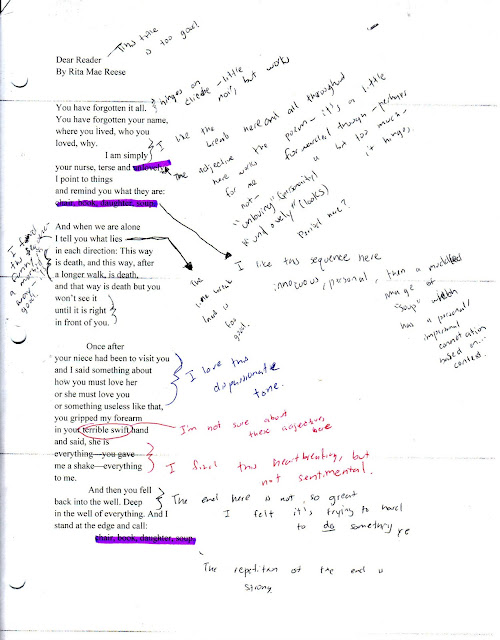 This title
is too good.
Dear Reader
By Rita Mae Reese
You have forgotten it all.
You have forgotten your name,
where you lived, who you
loved, why.
I am simply
your nurse, terse and unlovely
I point to things
and remind you what they are:
chair, book, daughter, soup.
hinges on
cliche – little
but works
I like the
break here and all throughout
The adjective the poem – it's a little
here works for me
though – perhaps
a bit too much
it hinges.
not –
"unloving" (personality)
"unlovely" (looks)
And when we are alone
I tell you what lies
in each direction: This way
is death, and this way, after
a longer walk, is death,
and that way is death but you
won't see it
until it is right
in front of you.
good.
The
line
is
too
good.
I like this sequence here
innocuous, personal, then a
image of
"soup" which
has a personal/
impersonal
connotation
based on...
context.
Once after
your niece had been to visit you
and I said something about
how you must love her
or she must love you
or something useless like that,
you gripped my forearm
in your terrible swift hand
and said, she is
everything—you gave
me a shake—everything
to me.
I love this
dispassionate
tone.
I'm not sure about
these adjectives
here
I find this heartbreaking, but
not sentimental.
And then you fell
back into the well. Deep
in the well of everything. And I
stand at the edge and call:
chair, book, daughter, soup.
The end here is not so great
I felt it's trying to hard
to do something
The repetition at the end is
strong